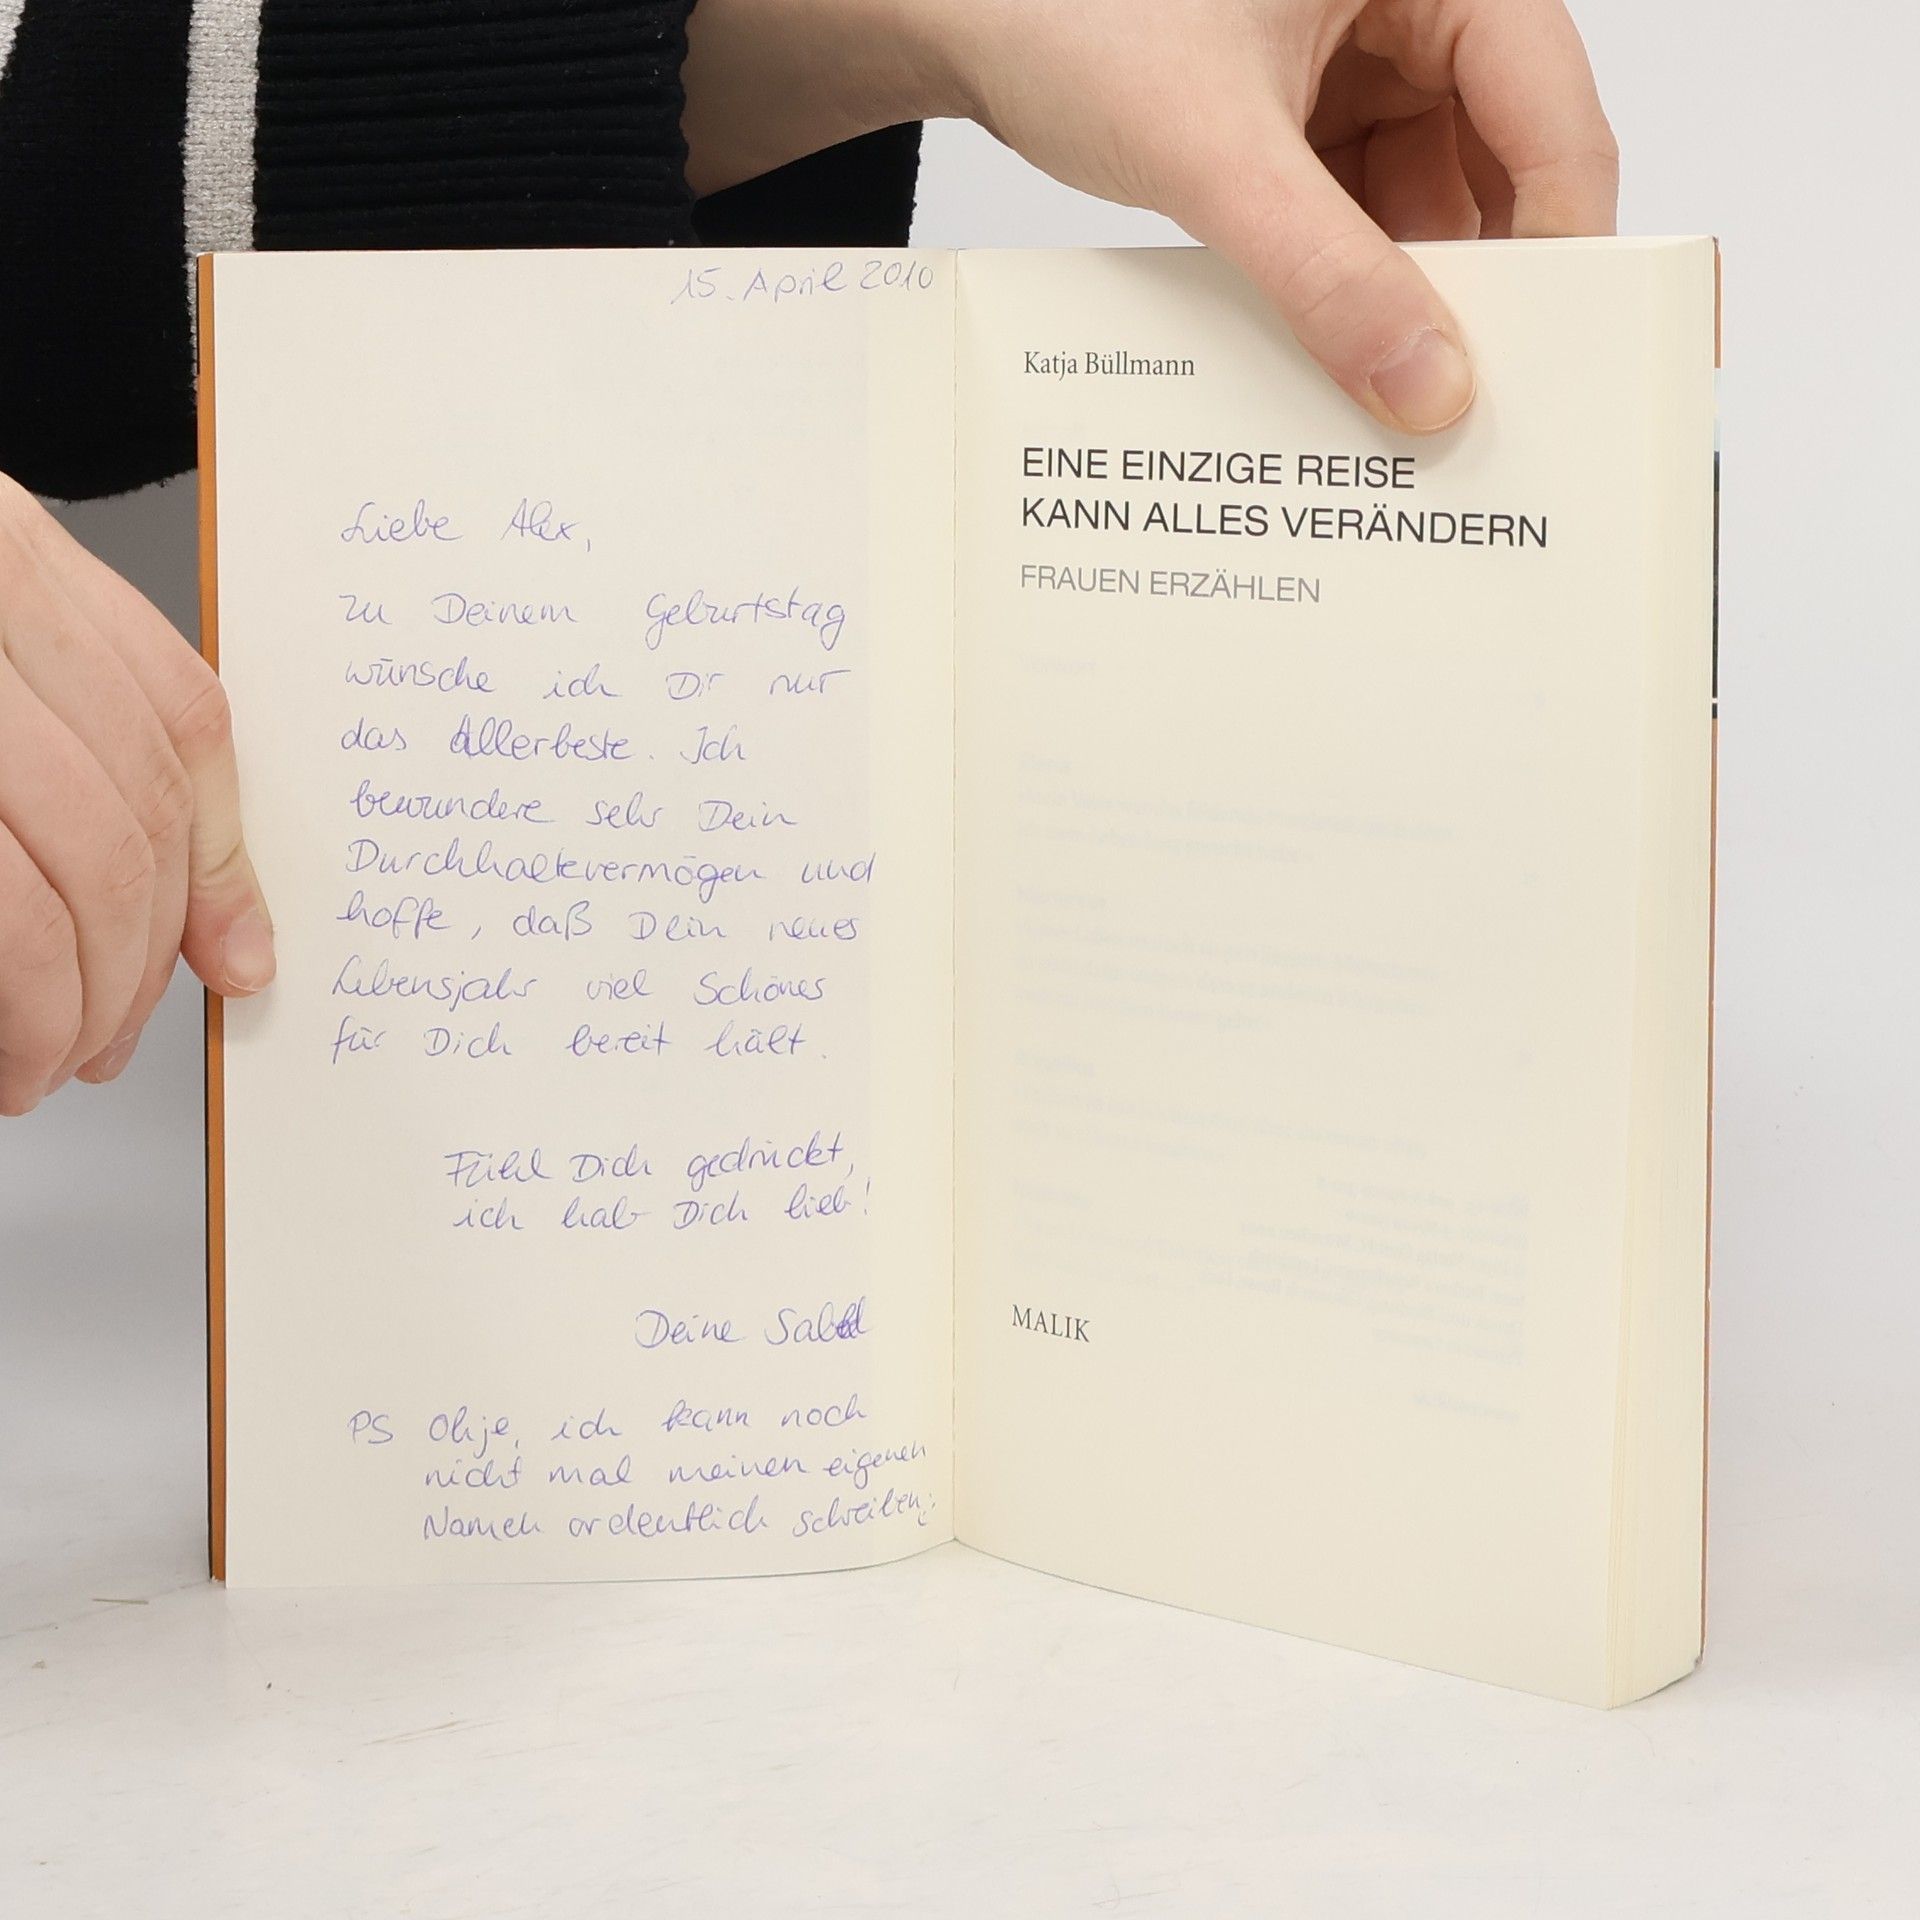 15. April 2010
Liebe Alex,
zu Deinem Geburtstag
wünsche ich Dir nur
das Allerbeste. Ich
bewundere sehr Dein
Durchhaltevermögen und
hoffe, daß Dein neues
Lebensjahr viel Schönes
für Dich bereit hält.
Fühl Dich gedrückt,
ich hab Dich lieb!
Deine
PS Ohje, ich kann noch
nicht mal meinen eigenen
Namen ordentlich schreiben
Katja Büllmann
EINE EINZIGE REISE
KANN ALLES VERÄNDERN
FRAUEN ERZÄHLEN
MALIK